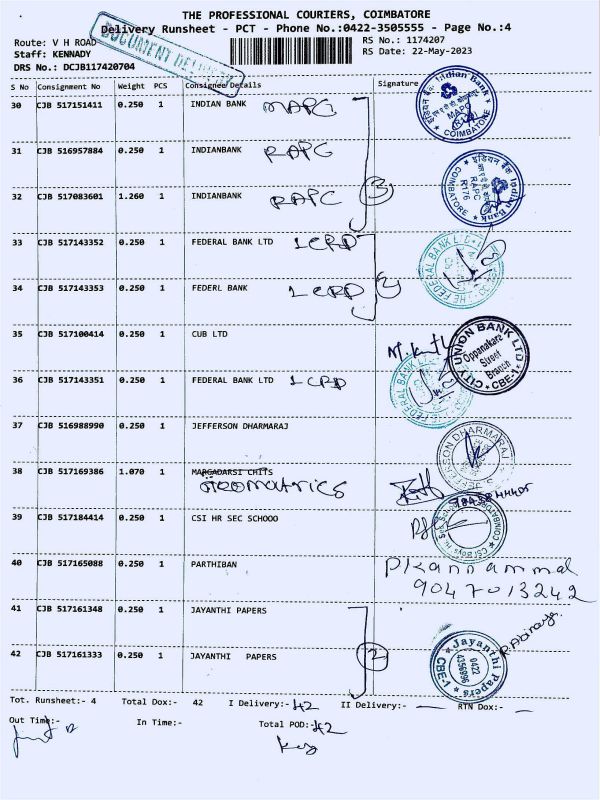 THE PROFESSIONAL COURIERS, COIMBATORE
Delivery Runsheet - PCT - Phone No.:0422-3505555 - Page No.:4
Route: V H ROAD
RS No.: 1174207
Staff: KENNADY
RS Date: 22-May-2023
DRS No.: DCJB117420704
DOCUMENT
S No Consignment No Weight PCS Consignee Details Signature
30 CJB 517151411 0.250 1 INDIAN BANK MAPC
Indian Bank MAPC COIMBATORE
31 CJB 516957884 0.250 1 INDIANBANK RAPC
इंडियन बैंक Indian Bank RAPC R176 COIMBATORE
32 CJB 517083601 1.260 1 INDIANBANK RAPC 3
33 CJB 517143352 0.250 1 FEDERAL BANK LTD LCRD
THE FEDERAL BANK LTD
34 CJB 517143353 0.250 1 FEDERL BANK LCRD 2
35 CJB 517100414 0.250 1 CUB LTD
CITY UNION BANK LTD Oppanakara Street Branch CBE-1
36 CJB 517143351 0.250 1 FEDERAL BANK LTD LCRD
FEDERAL BANK
37 CJB 516988990 0.250 1 JEFFERSON DHARMARAJ
SON DHARMARAJ
38 CJB 517169386 1.070 1 MARGADARSI CHITS
39 CJB 517184414 0.250 1 CSI HR SEC SCHOOO
40 CJB 517165088 0.250 1 PARTHIBAN
9047013242
41 CJB 517161348 0.250 1 JAYANTHI PAPERS
42 CJB 517161333 0.250 1 JAYANTHI PAPERS 2
Jayanthi Papers 0422 4356896 CBE-1
R.Abinaya
Tot. Runsheet:- 4 Total Dox:- 42 I Delivery:- 42 II Delivery:- — RTN Dox:- —
Out Time:- In Time:- Total POD:- 42